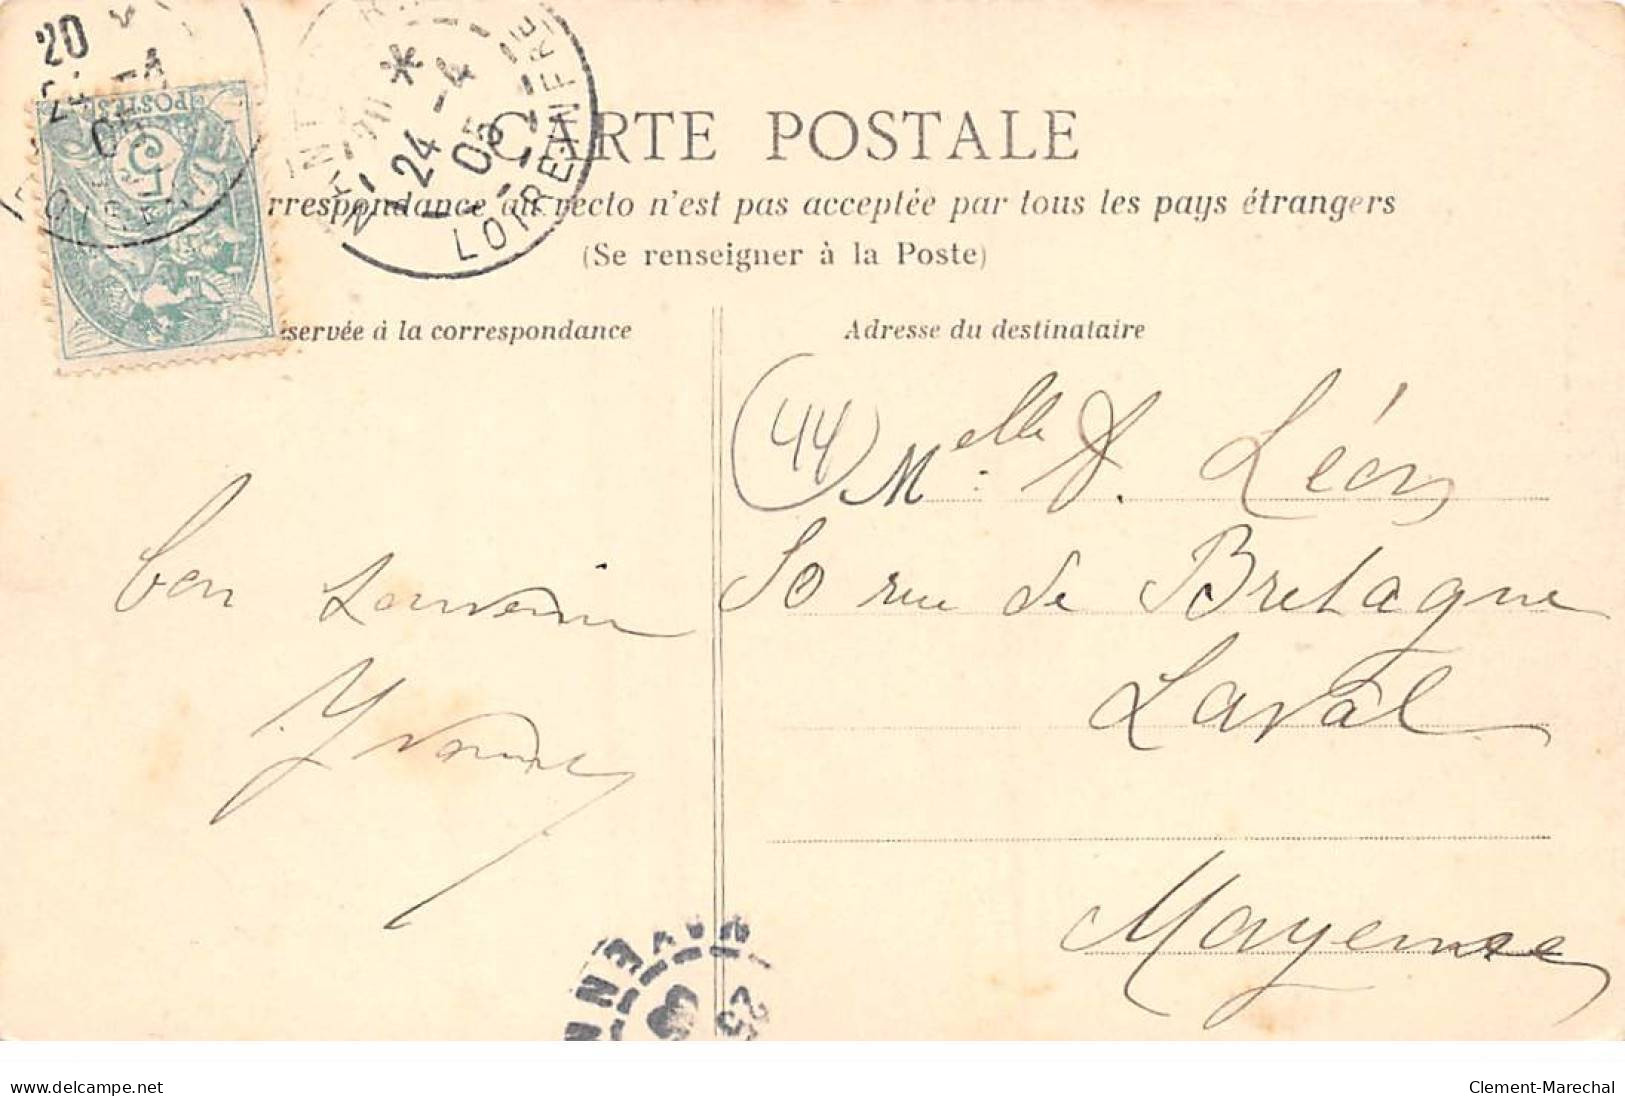 CARTE POSTALE
rrespondance au recto n'est pas acceptée par tous les pays étrangers
(Se renseigner à la Poste)
servée à la correspondance
Adresse du destinataire
POSTES
5
20
24 -4
05
LOIRE-INFRE
(44)
Melle D. Léon
50 rue de Bretagne
Laval
Mayenne
bon souvenir
Yvonne
MAYENN
25
www.delcampe.net
Clement-Marechal